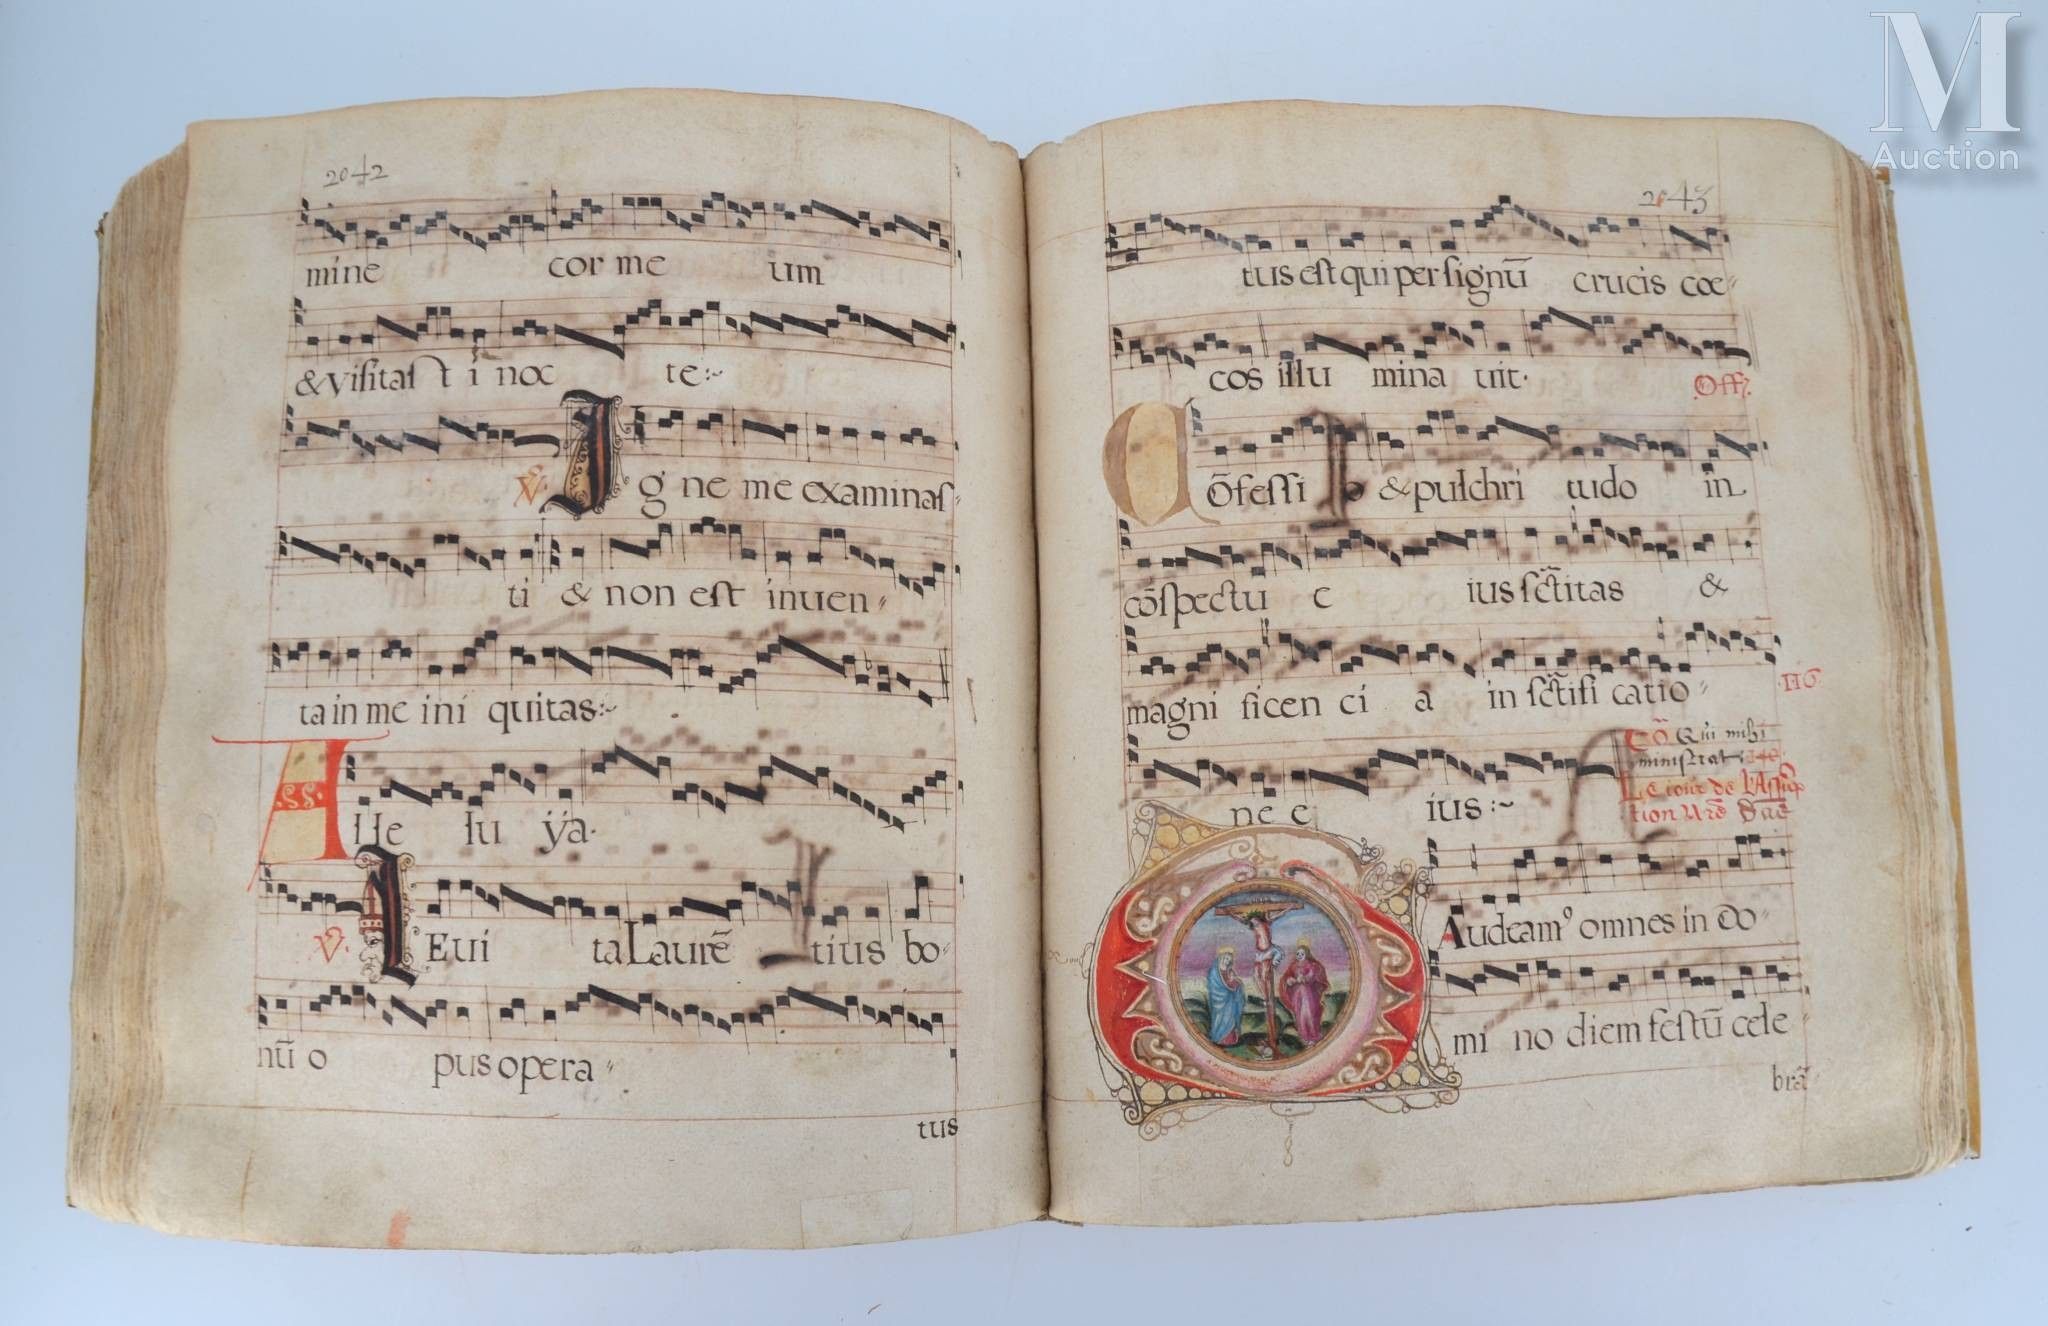 2042
mine cor me um
& visitast i noc te:~
℣. Igne me examinas-
ti & non est inuen〃
ta in me ini quitas:~
Alle lu ÿa.
℣. LEui ta Laurē tius bo-
nū o pus opera〃
tus
2043
tus est qui per signū crucis cœ〃
cos illu mina uit.
Off.
Cōfessi o & pulchri tudo in
cōspectu e ius sc̄titas &
magni ficen ci a in sc̄tifi catio〃
116
ne e ius:~
Cō Qui mihi
ministrat
Le iour de l'Assūp
tion Nr̄e Dāe
GAudeamꝰ omnes in do〃
mi no diem festū cele
brā
M
Auction